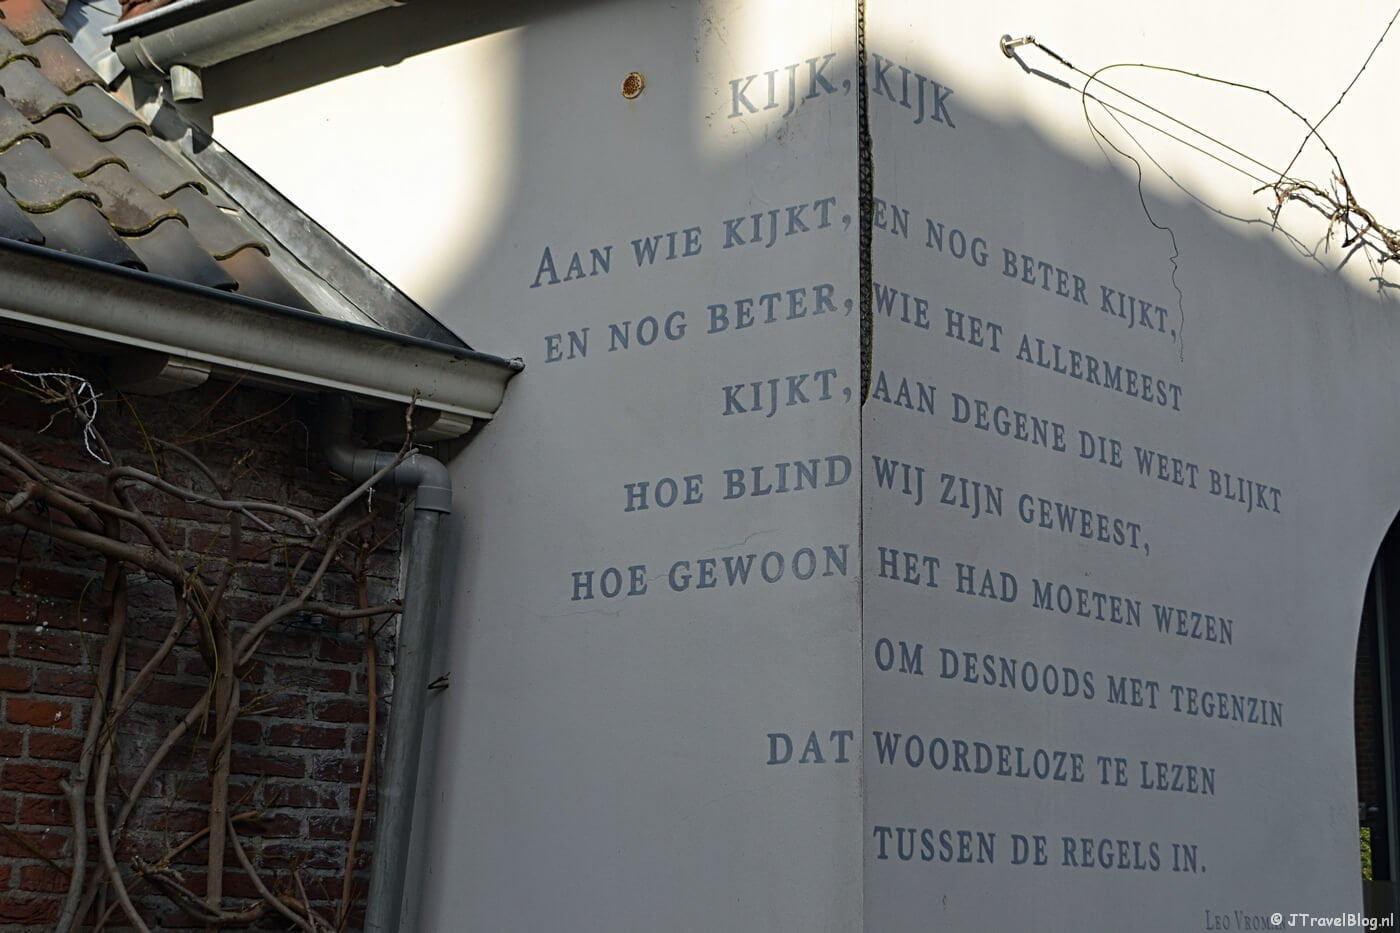 KIJK, KIJK
AAN WIE KIJKT, EN NOG BETER KIJKT,
EN NOG BETER, WIE HET ALLERMEEST
KIJKT, AAN DEGENE DIE WEET BLIJKT
HOE BLIND WIJ ZIJN GEWEEST,
HOE GEWOON HET HAD MOETEN WEZEN
OM DESNOODS MET TEGENZIN
DAT WOORDELOZE TE LEZEN
TUSSEN DE REGELS IN.
LEO VROMAN
© JTravelBlog.nl